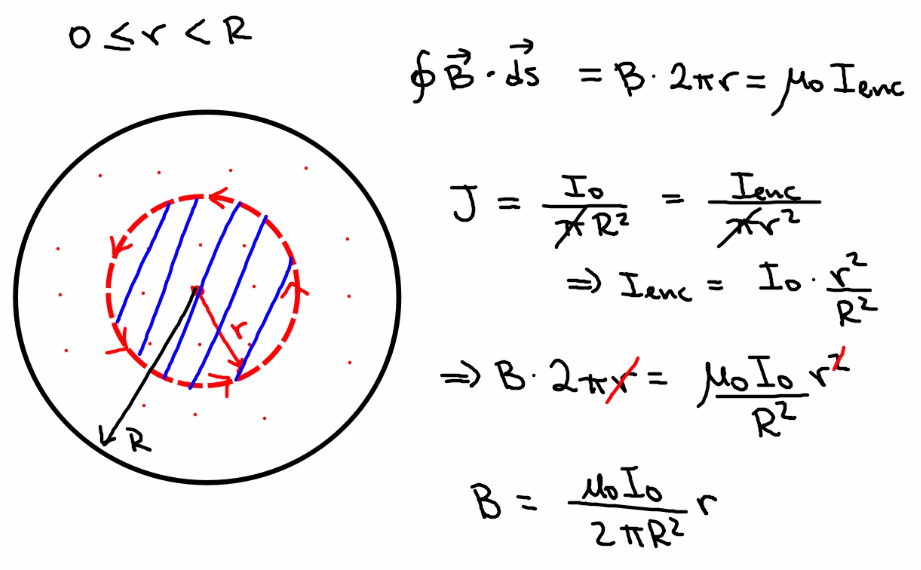 0 ≤ r < R
∮ B⃗ · d⃗s = B · 2πr = μ₀ I_enc
J = I₀ / πR² = I_enc / πr²
⇒ I_enc = I₀ · r² / R²
⇒ B · 2πr = μ₀I₀ r² / R²
B = μ₀I₀ / 2πR² r
r
R